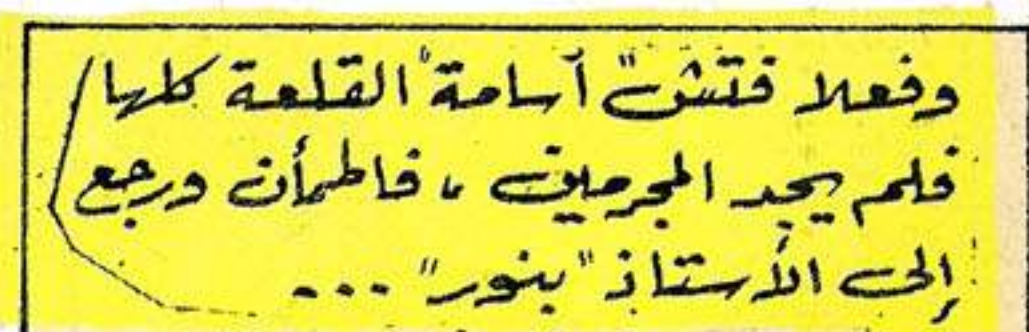 وفعلا فتش "أسامة" القلعة كلها
فلم يجد المجرمين ، فاطمأن ورجع
إلى الأستاذ "بنور" ...